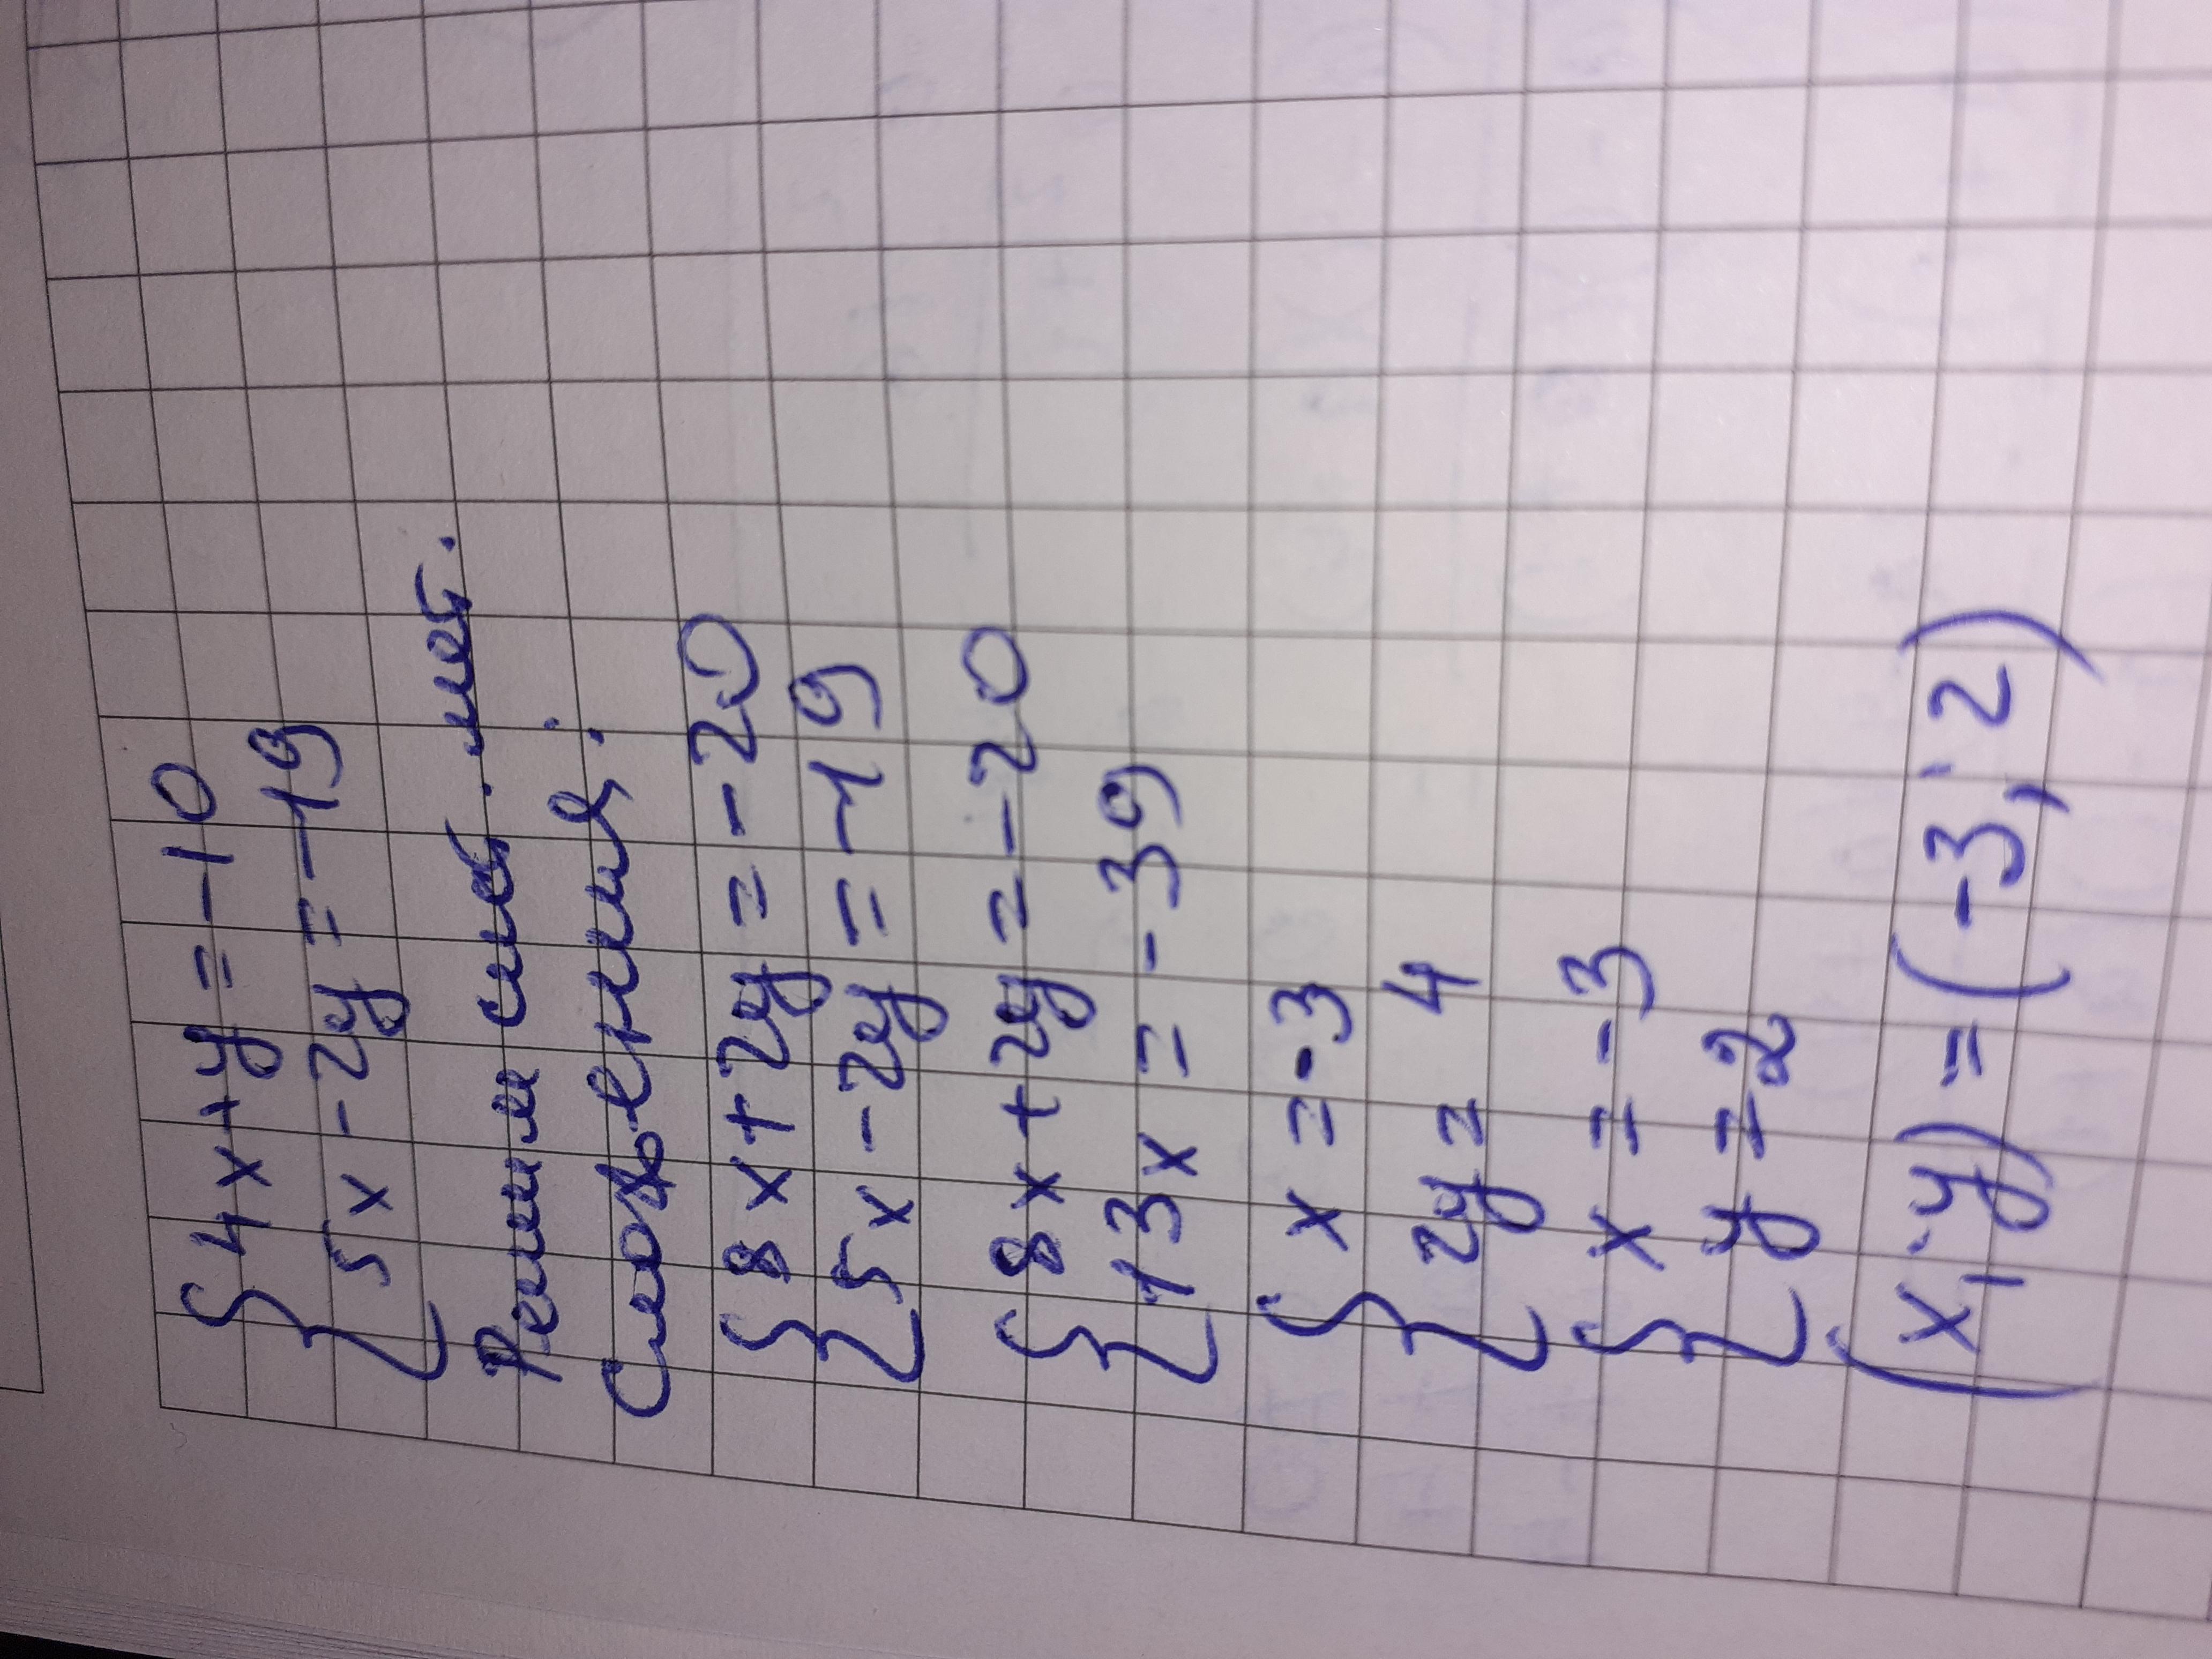 { 4x+y=-10
5x-2y=-19
Решим сист. мет.
сложения:
{ 8x+2y=-20
5x-2y=-19
{ 8x+2y=-20
13x=-39
{ x=-3
2y= 4
{ x=-3
y=2
(x;y)=(-3;2)